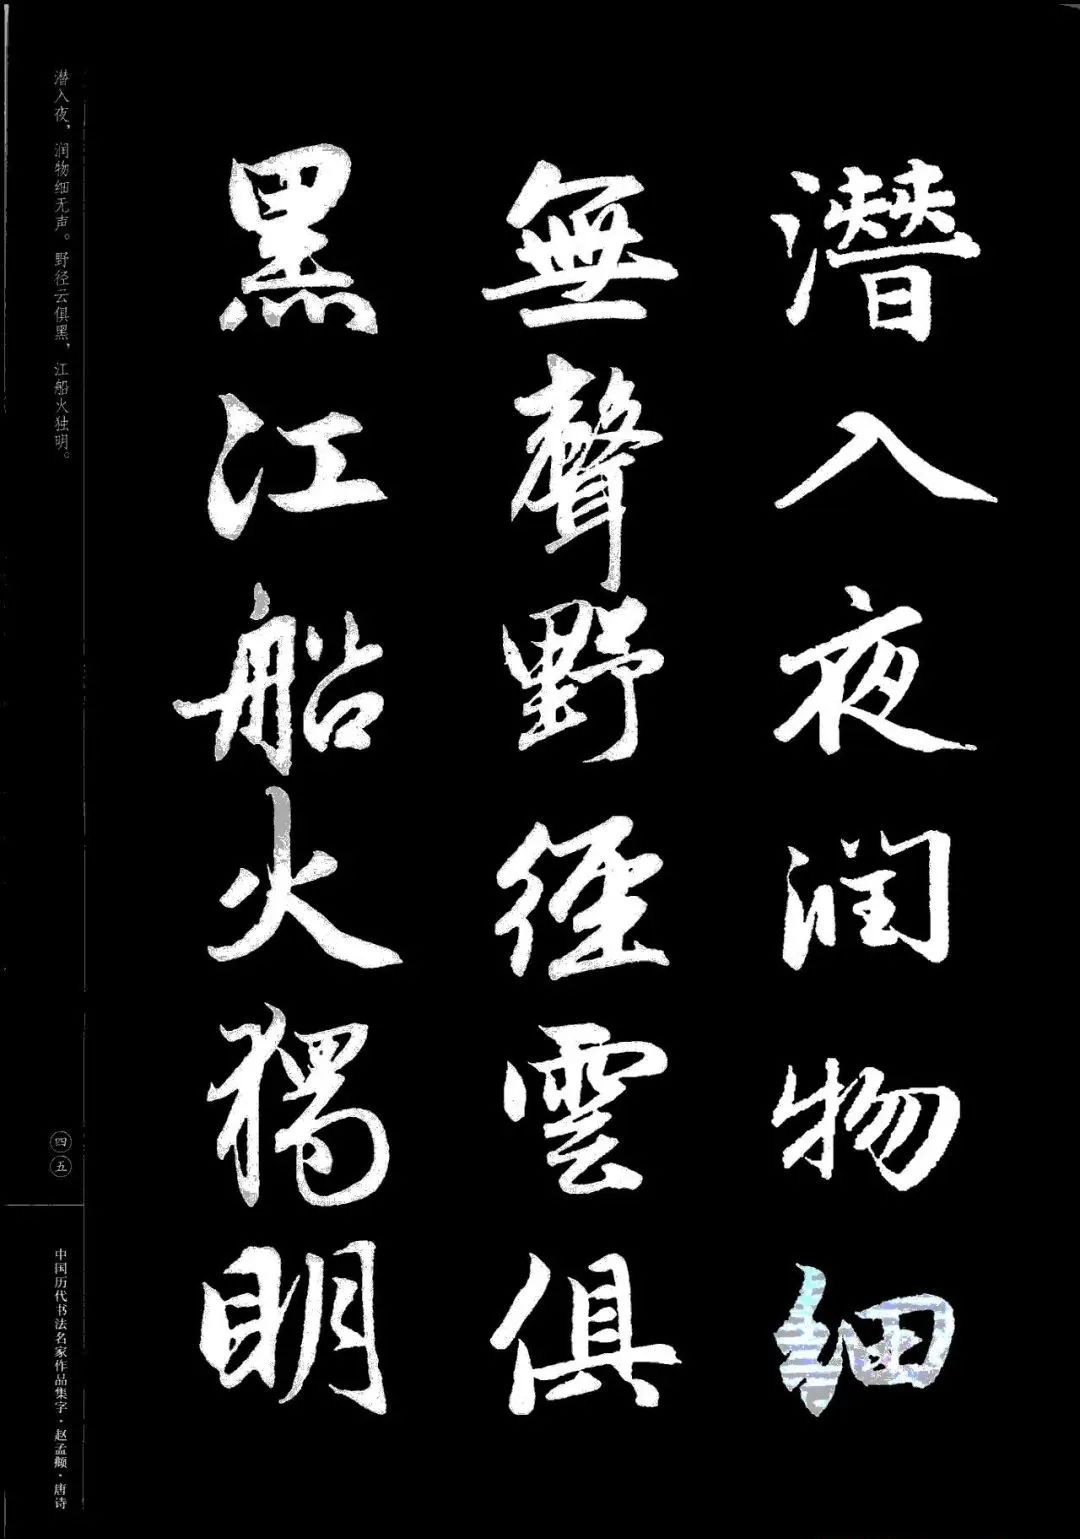 潛入夜润物細
無聲野徑雲俱
黑江船火獨明
潜入夜，润物细无声。野径云俱黑，江船火独明。
四五
中国历代书法名家作品集字·赵孟頫·唐诗